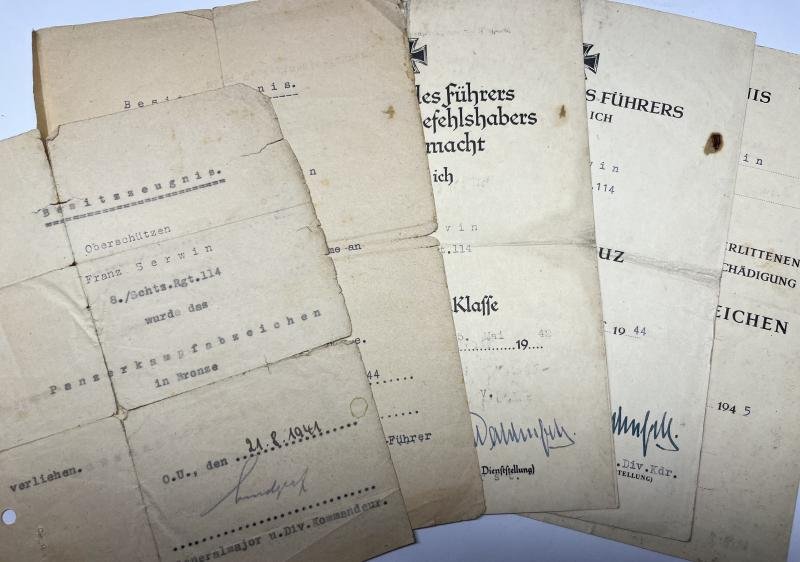 Besitzzeugnis.
Oberschützen
Franz Gerwin
8./Schtz.Rgt.114
wurde das
Panzerkampfabzeichen
in Bronze
verliehen.
O.U., den 21.8.1941
Generalmajor u.Div.Kommandeur.
Besitz nis.
n
me an
e.
44
-Führer
des Führers
efehlshabers
macht
ich
rwin
t.114
Klasse
5. Mai 1942
(Dienststellung)
S FÜHRERS
ICH
win
.114
UZ
T 1944
. Div.Kdr.
TELLUNG)
NIS
in
ERLITTENEN
CHÄDIGUNG
EICHEN
1945